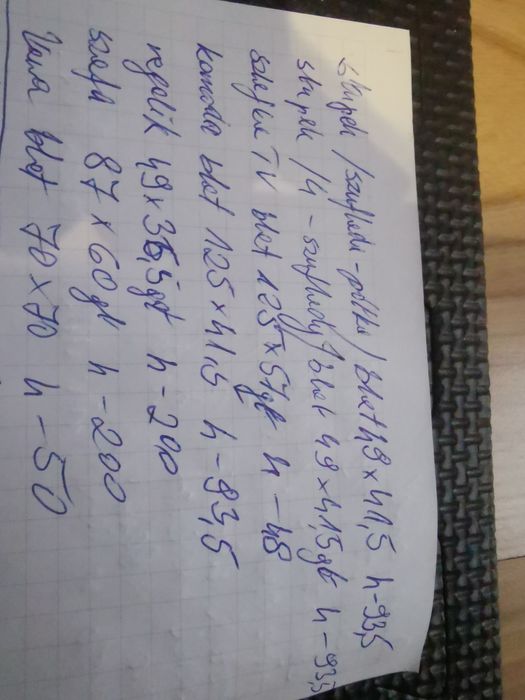 słupek /szuflada-półka/ blat 49 x 41,5 h-93,5
słupek /4-szuflady/ blat 49 x 41,5 gł h-93,5
szafka TV blat 125 x 57 gł h-48
komoda blat 125 x 41,5 h-93,5
regalik 49 x 36,5 gł h-200
szafa 87 x 60 gł h-200
ława blat 70 x 70 h-50